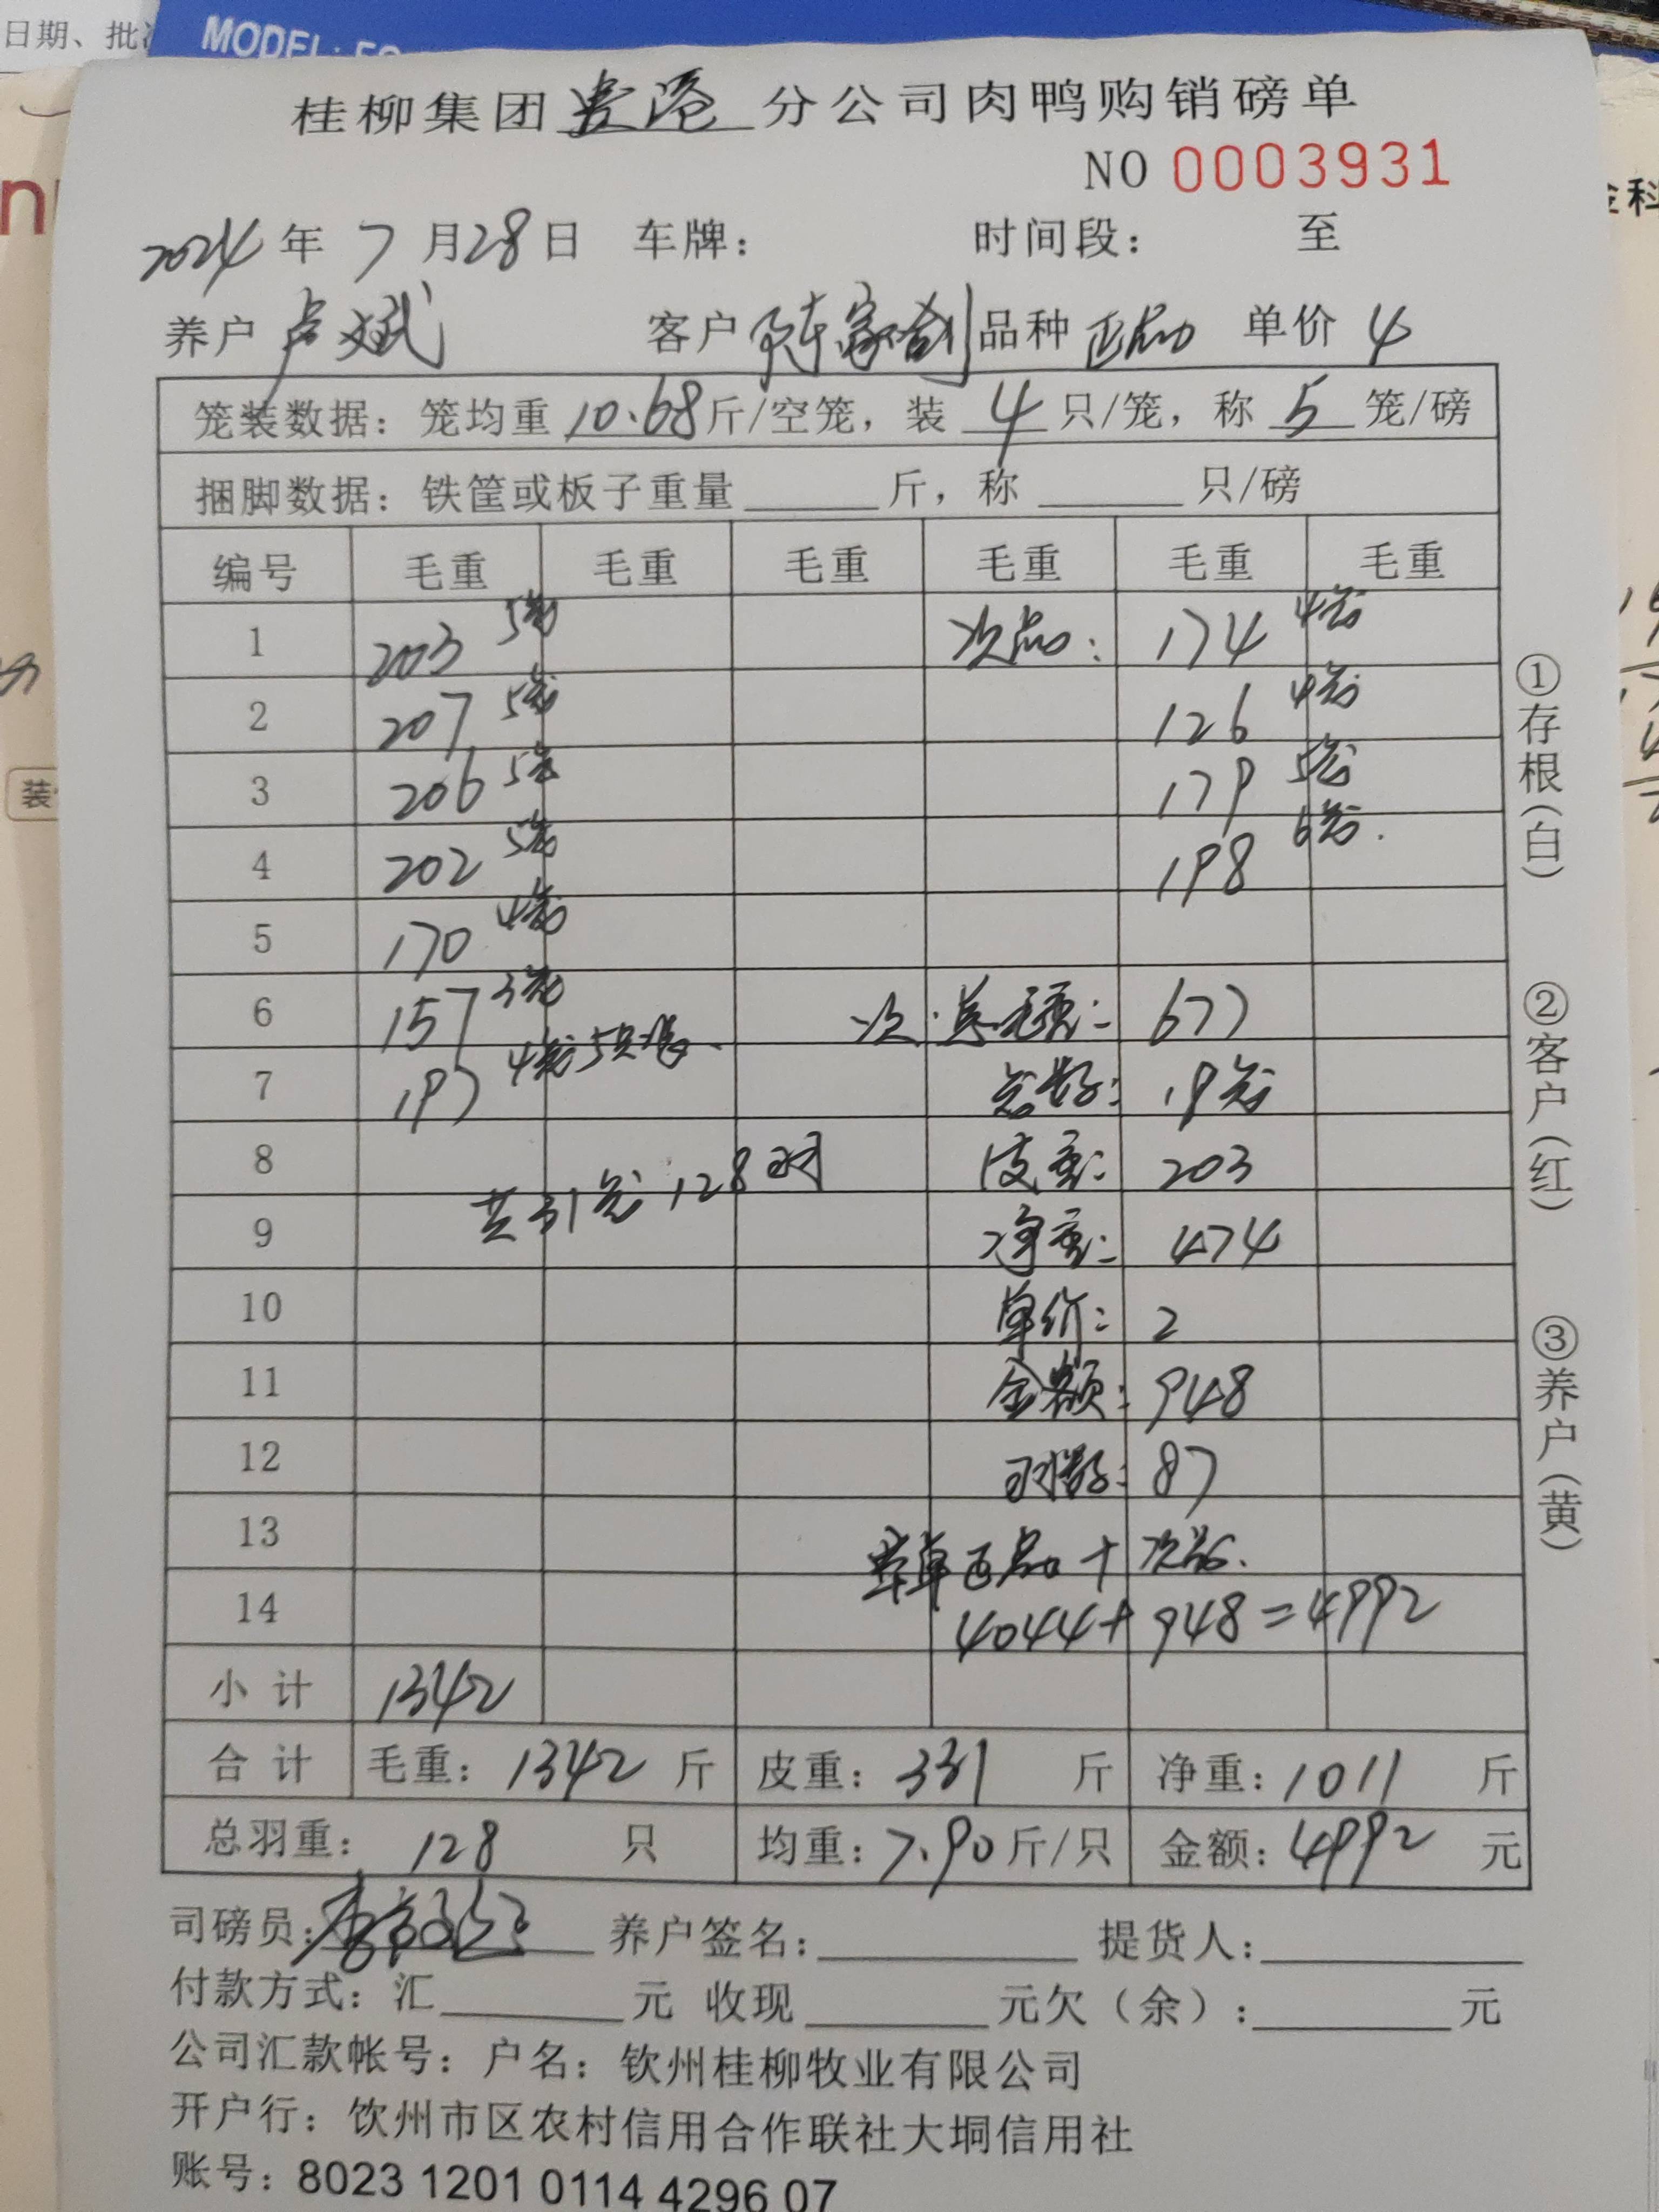 日期、批
MODEL:
桂柳集团贵港分公司肉鸭购销磅单
NO 0003931
2024年 7月28日 车牌： 时间段： 至
养户 卢文斌 客户 陈家创 品种 正品 单价 4
笼装数据：笼均重 10.68斤/空笼，装 4 只/笼，称 5 笼/磅
捆脚数据：铁筐或板子重量 斤，称 只/磅
编号 毛重 毛重 毛重 毛重 毛重 毛重
1 203 5笼 次品： 174 4笼
2 207 5笼 126 4笼
3 206 5笼 179 5笼
4 202 5笼 198 6笼.
5 170 4笼
6 157 3笼 次.总毛重： 677
7 197 4笼 5只 笼数： 19笼
8 皮重： 203
共31笼 128羽
9 净重： 474
10 单价： 2
11 金额： 948
12 羽数： 87
13 正品 + 次品.
14 4044+948=4992
小计 1342
合计 毛重：1342 斤 皮重：331 斤 净重：1011 斤
总羽重：128 只 均重：7.90斤/只 金额：4992 元
司磅员： 养户签名： 提货人：
付款方式：汇 元 收现 元欠（余）： 元
公司汇款帐号：户名：钦州桂柳牧业有限公司
开户行：饮州市区农村信用合作联社大垌信用社
账号：8023 1201 0114 4296 07
①存根（白）
②客户（红）
③养户（黄）